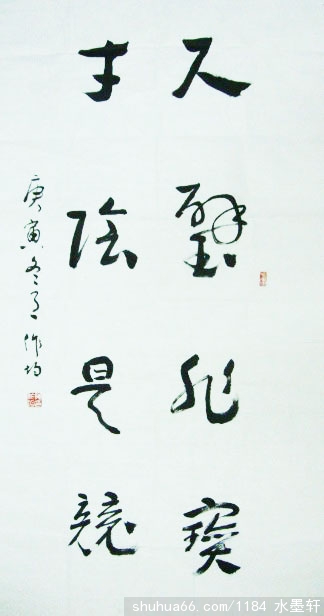 尺璧非寶
寸陰是競
庚寅冬月作均
shuhua66.com/1184 水墨轩